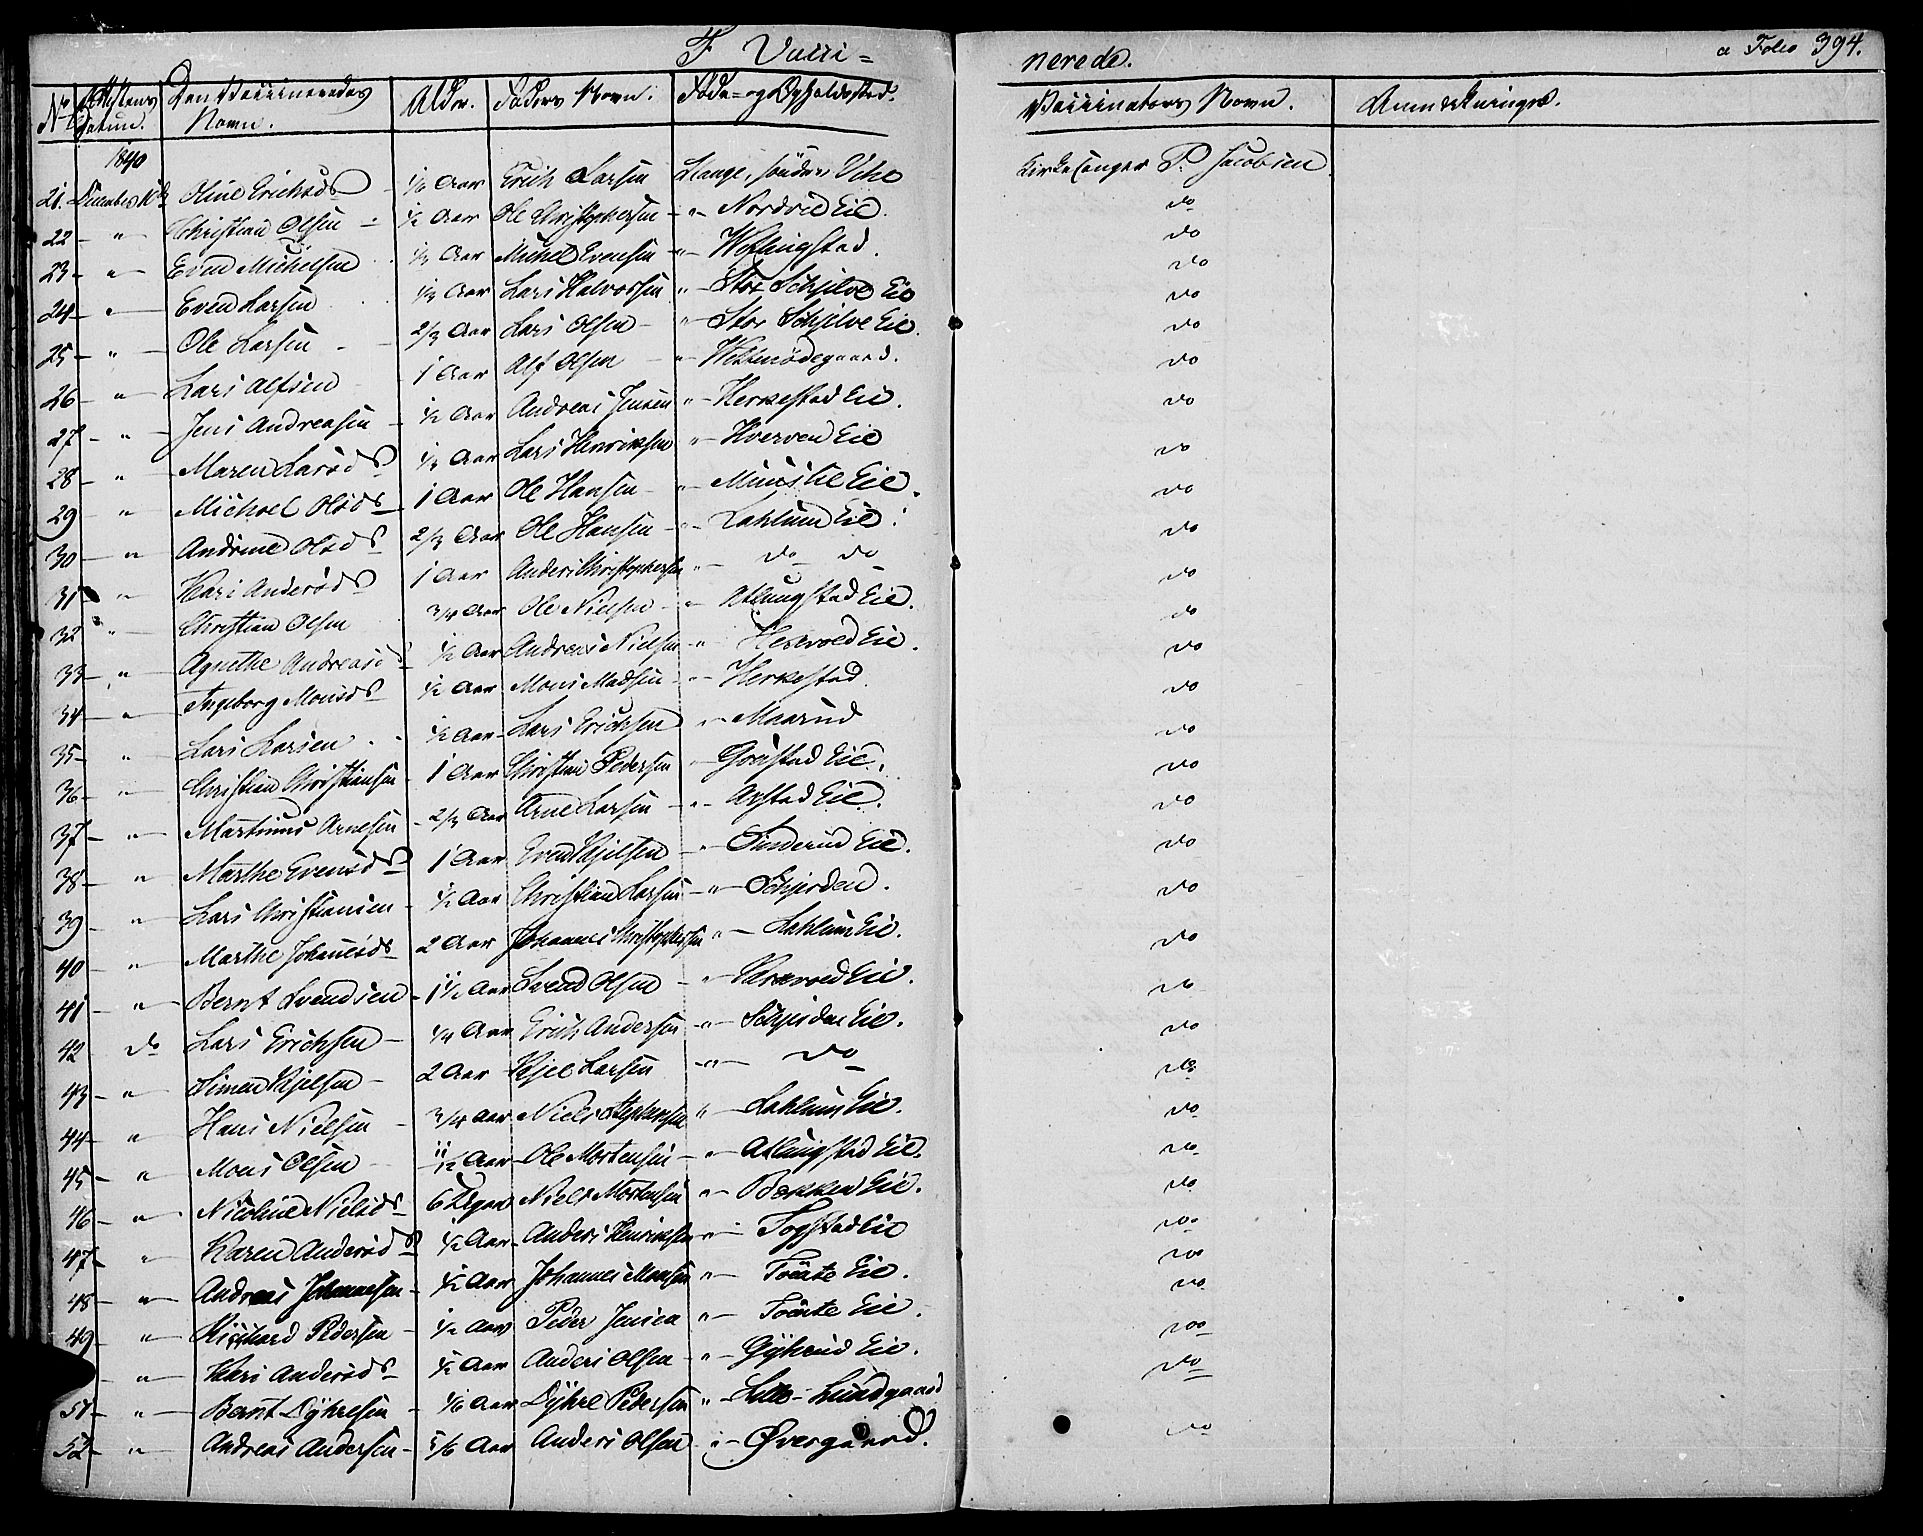 F Vacci=
nerede.
a Folio 394.
No Attestens Datum. Den Vaccineredes Navn. Alder. Faders Navn. Føde= og Opholdssted. Vaccinateurs Navn. Anmærkninger.
1840
21. December Oline Ericksd 1/2 Aar Erich Larsen Stange, søndre Kirkesanger P. Jacobsen
22 — " — Christian Olsen 1/2 Aar Ole Christophersen — " — Nordvie Eie. do
23 — " — Even Michelsen 1/2 Aar Michel Evensen " — do
24 — " — Even Larsen 1/2 Aar Lars Halvorsen " — Stor Schjelve Eie do
25 — " — Ole Larsen 2/3 Aar Lars Olsen — " — Stor Schjelve Eie. do
26 — " — Lars Alfsen 1 Aar Alf Olsen — " — do
27 — " — Jens Andreasen — 1/2 Aar Andreas Jensen " — Herkestad Eie. do
28 — " — Maren Larsd 1/2 Aar Lars Henriksen " — Hverven Eie do
29 — " — Michael Olsd 1 Aar Ole Hansen — " — Eie. do
30 — " — Andrine Olsd 2/3 Aar Ole Hansen — " — Lahlum Eie. do
31 — " — Kari Andersd 1 Aar Anders Christophersen " — do do do
32 — " — Christian Olsen 3/4 Aar Ole Nielsen — " — Atlungstad Eie. do
33 — " — Agnethe Andreasd 1/2 Aar Andreas Nielsen — " Eie. do
34 — " — Ingeborg Monsd 1/2 Aar Mons Madsen — " — Herkestad do
35 — " — Lars Larsen . . 1/2 Aar — Lars Erichsen " — Maarud do
36 — " — Christian Christiansen — 1 Aar Christian Pedersen " — Gorstad Eie. do
37 — " — Martinus Arnesen — 2/3 Aar Arne Larsen — " — Arstad Eie. do
38 — " — Marthe Evensd 1 Aar Even Kjelsen — " — Sinderud Eie. do
39 — " — Lars Christiansen — 1/2 Aar Christian Larsen — " — Schjerden. do
40 — " — Marthe Johannesd — 2 Aar Johannes Christophersen " — Lahlum Eie. do
41 — " — Bernt Svendsen — 1 1/2 Aar Svend Olsen — " — Eie. do
42 — do Lars Erichsen — 1/4 Aar Erich Andersen — " — Schjerden Eie. do
43 — " — Simen Kjelsen — 2 Aar Kjel Larsen — " — do do
44 — " — Hans Nielsen — 3/4 Aar Niels Stephensen " — Lahlum Eie. do
45 — " — Mons Olsen 1/2 Aar — Ole Mortensen — " — Atlungstad Eie. do
46 — " — Nicoline Nielsd — 6 Uger Niels Mortensen " — Bekken Eie. do
47 — " — Karen Andersd 1/2 Aar — Anders Henriksen " — Fogstad Eie do
48 — " — Andreas Johannesen — 1/2 Aar Johannes Monsen " — Tomte Eie. do
49 — " — Richard Pedersen — 1/2 Aar Peder Jensen " — Tomte Eie. do
— " — Kari Andersd — 1/2 Aar Anders Olsen — " — Gyhrud Eie. do
51 — " — Bernt Dyhresen — 1/6 Aar Dyhre Pedersen " — Lille-Lundgaard do
52 — " — Andreas Andersen — 5/6 Aar Anders Olsen " — Øvergaard. do